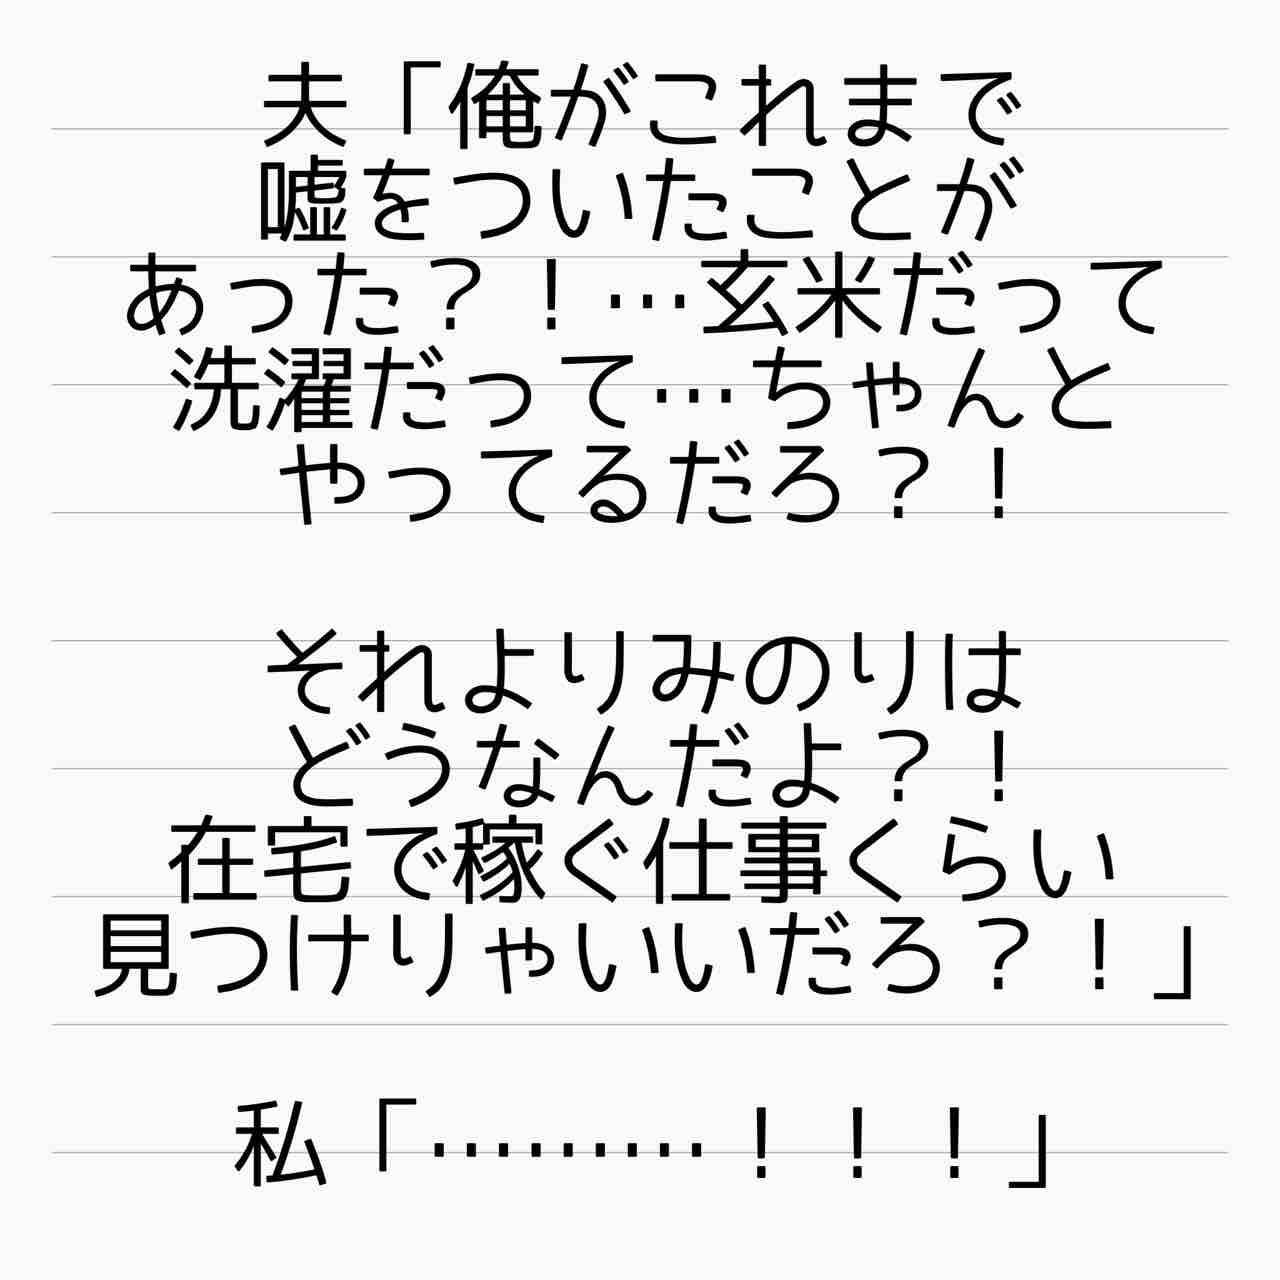 夫「俺がこれまで
嘘をついたことが
あった？！…玄米だって
洗濯だって…ちゃんと
やってるだろ？！
それよりみのりは
どうなんだよ？！
在宅で稼ぐ仕事くらい
見つけりゃいいだろ？！」
私「………！！！」